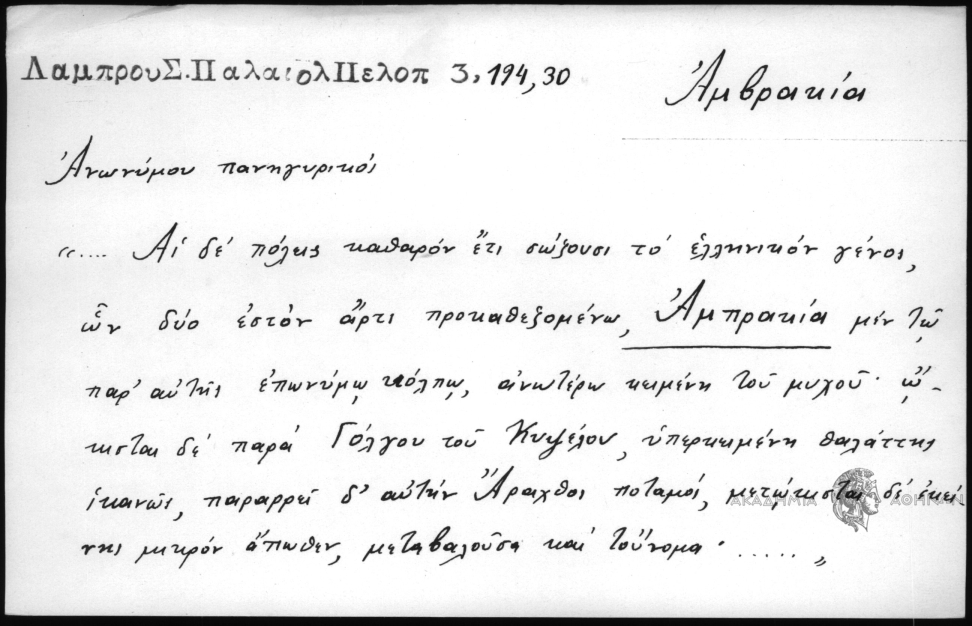 ΛαμπρουΣ.ΠαλαιολΠελοπ 3, 194,30
Ἀμβρακία
Ἀνωνύμου πανηγυρικός
«.... Αἱ δὲ πόλεις καθαρόν ἔτι σώζουσι τὸ ἑλληνικόν γένος,
ὧν δύο ἐστόν ἄρτι προκαθεζομένω, Ἀμπρακία μέν τῷ
παρ' αὐτῆς ἐπωνύμῳ κόλπῳ, ἀνωτέρω κειμένη τοῦ μυχοῦ· ᾤ-
κισται δέ παρά Γόλγου τοῦ Κυψέλου, ὑπερκειμένη θαλάττης
ἱκανῶς, παραρρεῖ δ' αὐτήν Ἄραχθος ποταμός, μετῴκισται δέ ἐκεί
νης μικρόν ἄπωθεν, μεταβαλοῦσα καί τοὔνομα· ..... »
ΑΚΑΔΗΜΙΑ ΑΘΗΝΩΝ